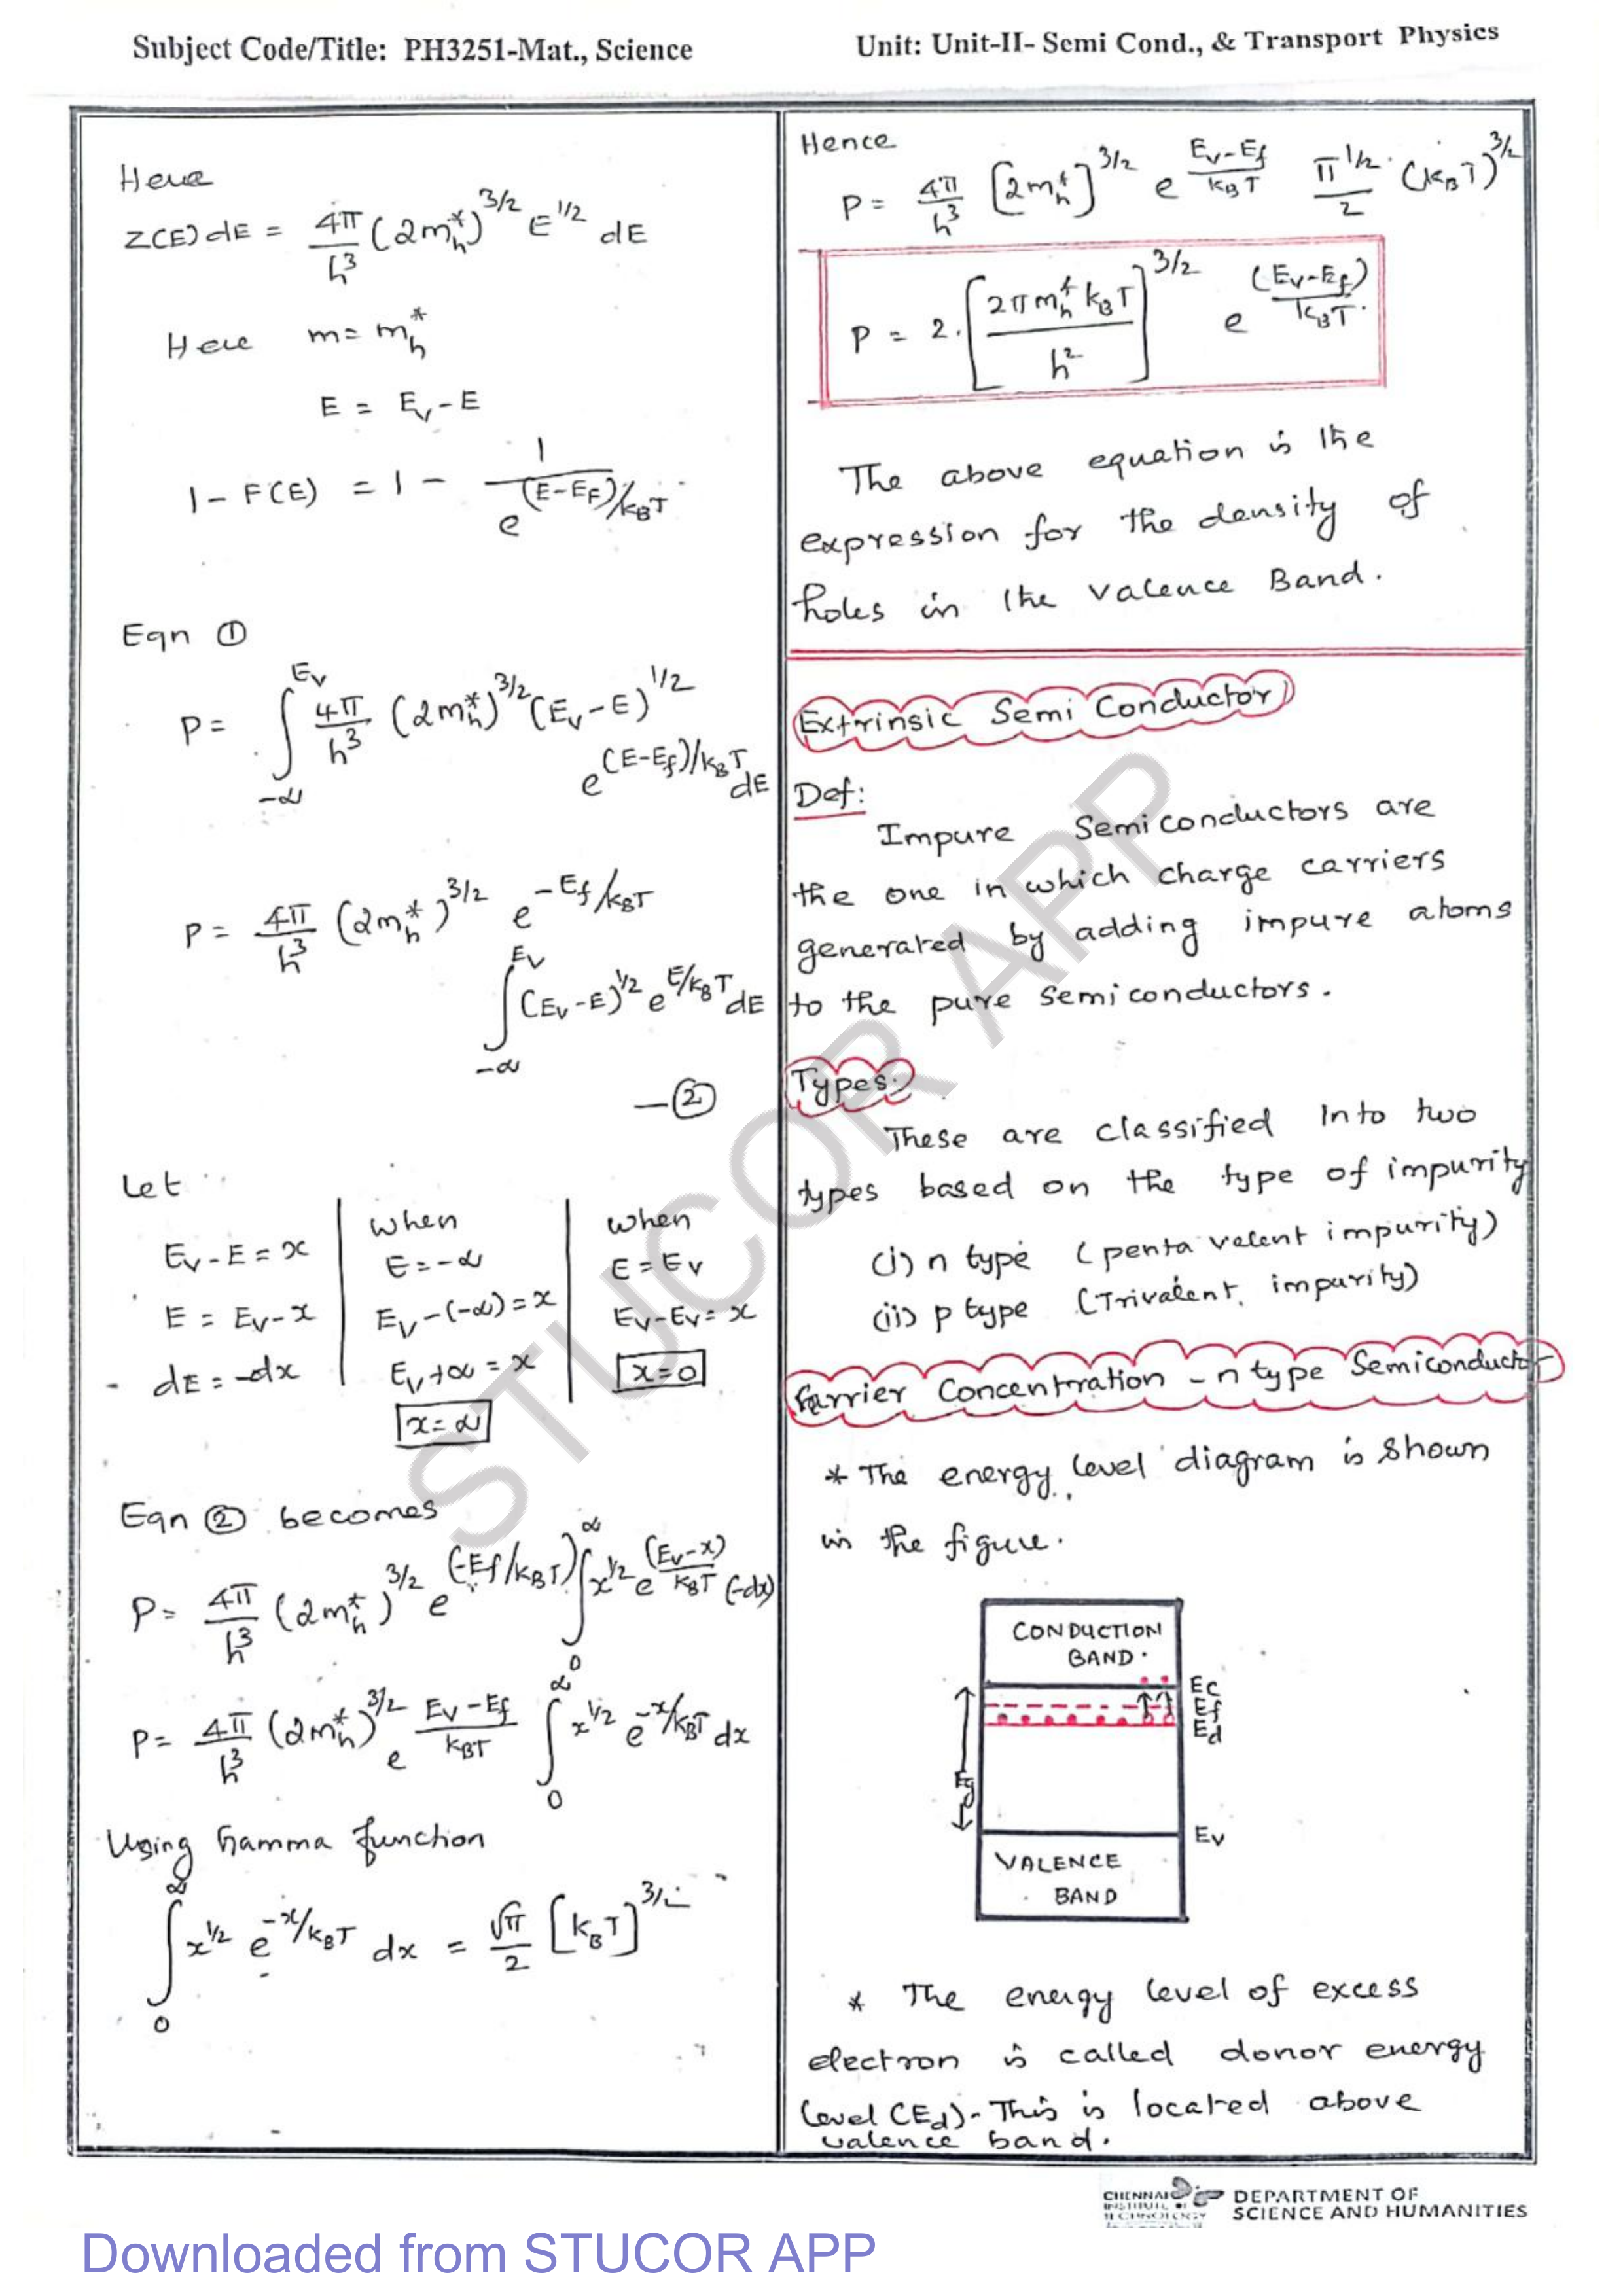 Subject Code/Title: PH3251-Mat., Science
Unit: Unit-II- Semi Cond., & Transport Physics
Here
Z(E) dE = 4π/h³ (2m*h)^3/2 E^1/2 dE
Here m = m*h
E = Ev - E
1 - F(E) = 1 - 1/e^(E-EF)/kBT
Eqn ①
P = ∫_-∞^Ev 4π/h³ (2m*h)^3/2 (Ev-E)^1/2
e^(E-Ef)/kBT dE
P = 4π/h³ (2m*h)^3/2 e^-Ef/kBT
∫_-∞^Ev (Ev-E)^1/2 e^E/kBT dE
—②
Let
Ev-E = x
E = Ev-x
dE = -dx
when
E = -∞
Ev-(-∞) = x
Ev+∞ = x
x = ∞
when
E = Ev
Ev-Ev = x
x = 0
Eqn ② becomes
P = 4π/h³ (2m*h)^3/2 e^(-Ef/kBT) ∫_0^∞ x^1/2 e^(Ev-x)/kBT (-dx)
P = 4π/h³ (2m*h)^3/2 e^Ev-Ef/kBT ∫_0^∞ x^1/2 e^-x/kBT dx
Using Gamma function
∫_0^∞ x^1/2 e^-x/kBT dx = √π/2 [kBT]^3/2
Hence
P = 4π/h³ [2m*h]^3/2 e^Ev-Ef/kBT π^1/2/2 (kBT)^3/2
P = 2. [2πm*h kBT/h²]^3/2 e^(Ev-Ef)/kBT.
The above equation is the
expression for the density of
holes in the valence Band.
Extrinsic Semi Conductor
Def:
Impure Semiconductors are
the one in which charge carriers
generated by adding impure atoms
to the pure semiconductors.
Types:
These are classified Into two
types based on the type of impurity
(i) n type (penta valent impurity)
(ii) p type (Trivalent impurity)
Carrier Concentration - n type Semiconductor
* The energy level diagram is shown
in the figure.
CONDUCTION
BAND
Ec
Ef
Ed
Eg
Ev
VALENCE
BAND
* The energy level of excess
electron is called donor energy
level (Ed). This is located above
valence band.
STUCOR APP
CHENNAI
INSTITUTE OF
TECHNOLOGY
DEPARTMENT OF
SCIENCE AND HUMANITIES
Downloaded from STUCOR APP